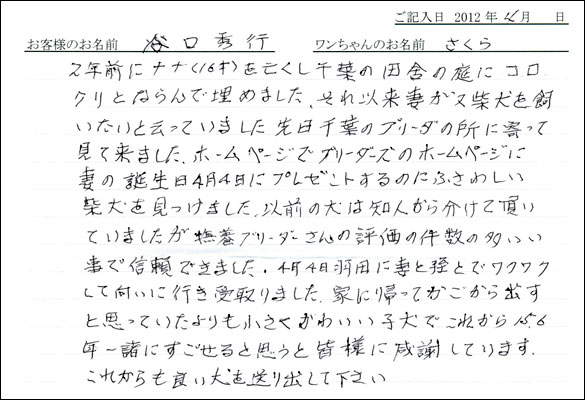 ご記入日 2012年 4月 日
お客様のお名前 谷口秀行 ワンちゃんのお名前 さくら
2年前にナナ(16才)を亡くし千葉の田舎の庭にコロ
クリとならんで埋めました、それ以来妻が又柴犬を飼
いたいと云っていました先日千葉のブリーダの所に寄って
見て来ました、ホームページでブリーダーズのホームページに
妻の誕生日4月4日にプレゼントするのにふさわしい
柴犬を見つけました、以前の犬は知人から分けて頂い
ていましたが撫養ブリーダーさんの評価の件数の多いい
事で信頼できました、4月4日羽田に妻と姪とでワクワク
して向いに行き受取りました、家に帰ってかごから出す
と思っていたよりも小さくかわいい子犬でこれから15.6
年一諸にすごせると思うと皆様に感謝しています、
これからも良い犬を送り出して下さい